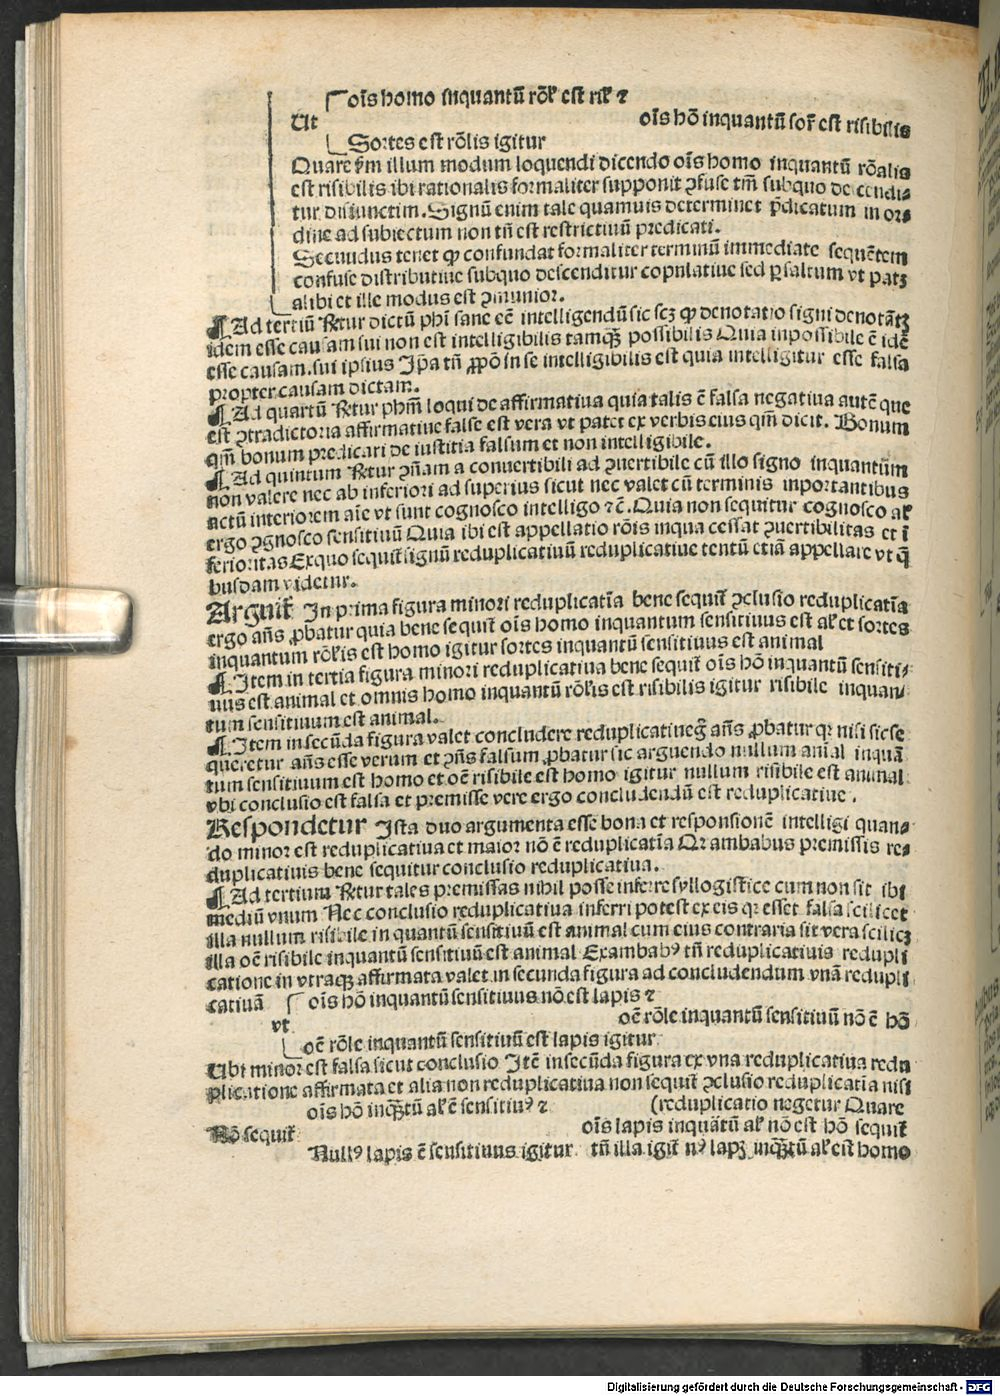 oīs homo inquantū rōl' est ris' ⁊
Ut oīs hō inquantū sor̄ est risibilis
Sortes est rōlis igitur
Quare ẜm illum modum loquendi dicendo oīs homo inquantū rōalis
est risibilis ibi rationalis formaliter supponit ꝯfuse tm̄ subquo descendi⸗
tur disiunctim. Signū enim tale quamuis determinet p̄dicatum in or⸗
dine ad subiectum non tn̄ est restrictiuū predicati.
Secundus tenet ꝙ confundat formaliter terminū immediate sequētem
confuse distributiue subquo descenditur copulatiue sed ꝑ saltum vt patꝫ
alibi et ille modus est ꝯmunior.
¶ Ad tertiū Rn̄tur dictū phī sane eē intelligendū sic scꝫ ꝙ denotatio signi denotātꝫ
idem esse causam sui non est intelligibilis tamꝗ̄ possibilis Quia inpossibile ē idē
esse causam.sui ipsius Ip̄a tn̄ ꝓpō in se intelligibilis est quia intelligitur esse falsa
propter causam dictam.
¶ Ad quartū Rn̄tur phm̄ loqui de affirmatiua quia talis ē falsa negatiua autē que
est ꝯtradictoria affirmatiue false est vera vt patet ex verbis eius qm̄ dicit. Bonum
qm̄ bonum predicari de iustitia falsum et non intelligibile.
¶ Ad quintum Rn̄tur ꝯn̄am a conuertibili ad ꝯuertibile cū illo signo inquantūm
non valere nec ab inferiori ad superius sicut nec valet cū terminis inportantibus
actū interiorem aīe vt sunt cognosco intelligo ⁊c̄. Quia non sequitur cognosco al'
ergo ꝯgnosco sensitiuū Quia ibi est appellatio rōis inqua cessat ꝯuertibilitas et ī
ferioritas Exquo sequit᷑ signū reduplicatiuū reduplicatiue tentū etiā appellare vt q̄
busdam videtur.
Arguit᷑ In prima figura minori reduplicatīa bene sequit᷑ ꝯclusio reduplicatīa
ergo an̄s ꝓbatur quia bene sequit᷑ oīs homo inquantum sensitiuus est al' et sortes
inquantum rōl'is est homo igitur sortes inquantū sensitiuus est animal
¶ Item in tertia figura minori reduplicatiua bene sequit᷑ oīs hō inquantū sensiti⸗
uus est animal et omnis homo inquantū rōl'is est risibilis igitur risibile inquan⸗
tum sensitiuum est animal.
¶ Item in secūda figura valet concludere reduplicatiue ḡ an̄s ꝓbatur qꝛ nisi sic se
queretur an̄s esse verum et ꝯn̄s falsum ꝓbatur sic arguendo nullum anīal inquā
tum sensitiuum est homo et oē risibile est homo igitur nullum risibile est animal
vbi conclusio est falsa et premisse vere ergo concludendū est reduplicatiue.
Respondetur Ista duo argumenta esse bona et responsionē intelligi quan⸗
do minor est reduplicatiua et maior nō ē reduplicatīa Qꝛ ambabus premissis re⸗
duplicatiuis bene sequitur conclusio reduplicatiua.
¶ Ad tertium Rn̄tur tales premissas nihil posse inferre syllogistice cum non sit ibi
mediū vnum Nec conclusio reduplicatiua inferri potest ex eis qꝛ esset falsa scilicet
illa nullum risibile in quantū sensitiuū est animal cum eius contraria sit vera scilicꝫ
illa oē risibile inquantū sensitiuū est animal Ex ambabꝰ tn̄ reduplicatiuis redupli
catione in vtraqꝫ affirmata valet in secunda figura ad concludendum vnā redupli
catiuā oīs hō inquantū sensitiuus nō est lapis ⁊
vt oē rōle inquantū sensitiuū nō ē hō
oē rōle inquantū sensitiuū est lapis igitur
Ubi minor est falsa sicut conclusio Itē in secūda figura ex vna reduplicatiua redu
plicatione affirmata et alia non reduplicatiua non sequit᷑ ꝯclusio reduplicatīa nisi
oīs hō inqꝗ̄tū al' ē sensitiuꝰ ⁊ (reduplicatio negetur Quare
oīs lapis inquātū al' nō est hō sequit᷑
Nō sequit᷑
Nullꝰ lapis ē sensitiuus igitur tn̄ illa igit᷑ nꝰ lapꝫ inqꝗ̄tū al' est homo
Digitalisierung gefördert durch die Deutsche Forschungsgemeinschaft - DFG